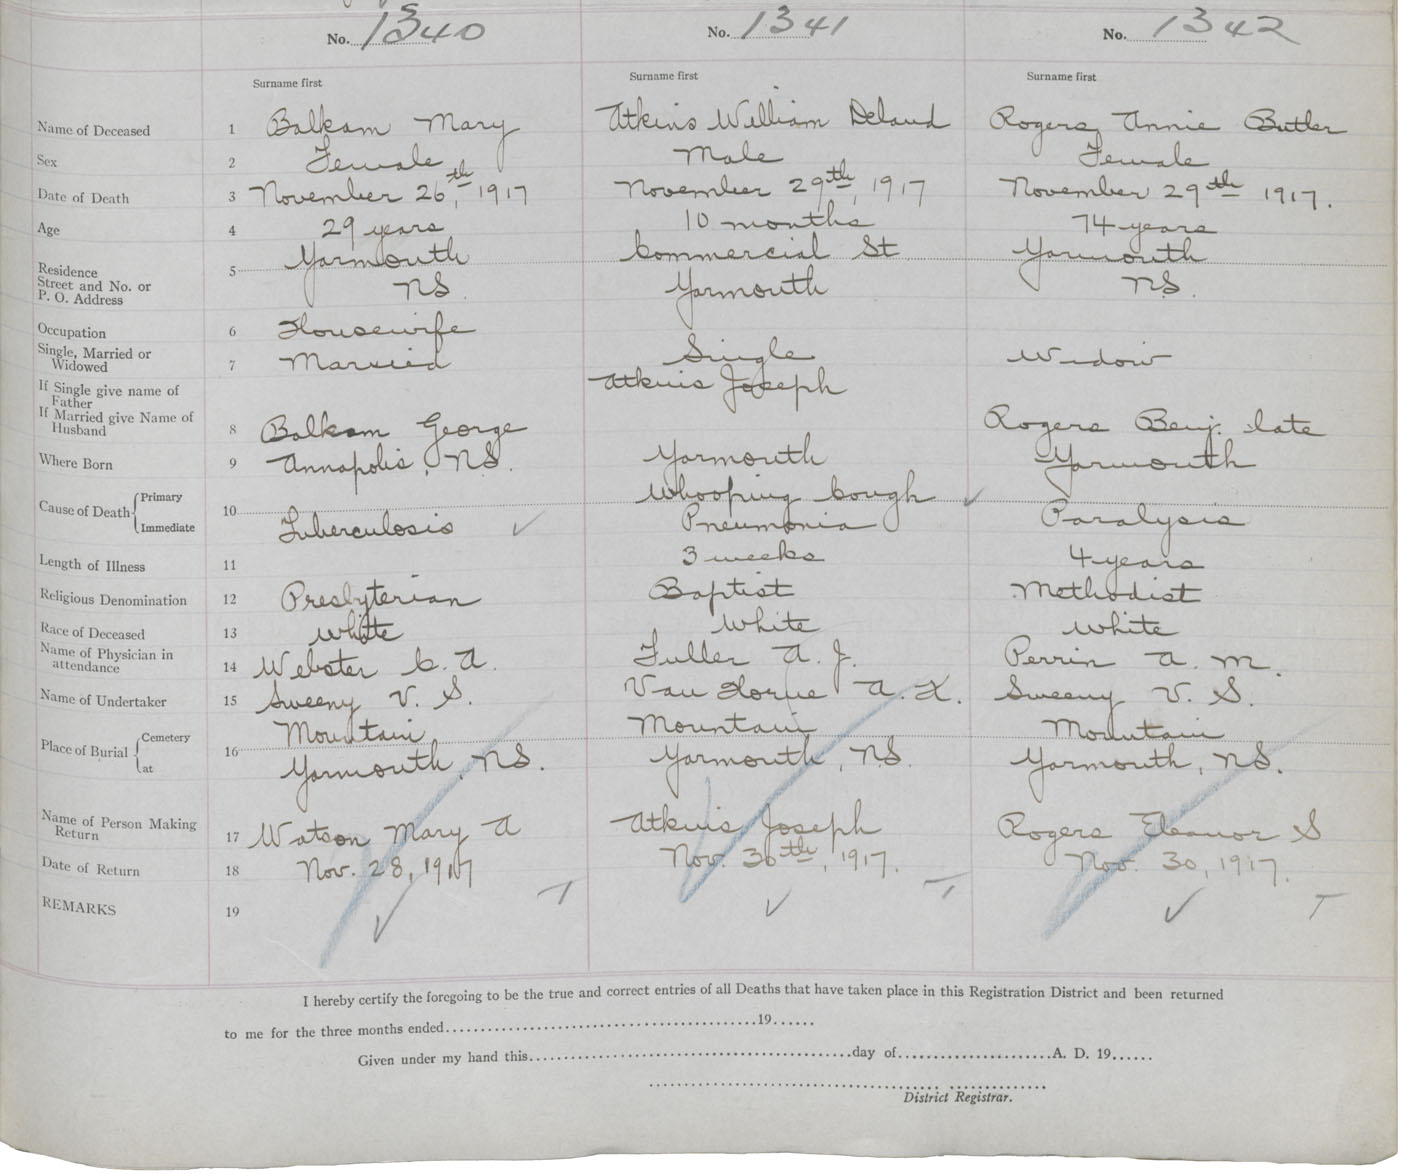 No. 1340 No. 1341 No. 1342
Surname first Surname first Surname first
Name of Deceased 1 Balkam Mary Atkins William Deland Rogers, Annie Butler
Sex 2 Female Male Female
Date of Death 3 November 26th, 1917 November 29th, 1917 November 29th 1917.
Age 4 29 years 10 months 74 years
Residence 5 Yarmouth Commercial St Yarmouth
Street and No. or
P. O. Address NS. Yarmouth NS.
Occupation 6 Housewife
Single, Married or
Widowed 7 Married Single Widow
If Single give name of
Father Atkins Joseph
If Married give Name of
Husband 8 Balkam George Rogers Benj. late
Where Born 9 Annapolis, NS. Yarmouth Yarmouth
Cause of Death Primary Whooping Cough
10
Immediate Tuberculosis ✓ Pneumonia ✓ Paralysis
Length of Illness 11 3 weeks 4 years
Religious Denomination 12 Presbyterian Baptist Methodist
Race of Deceased 13 White White White
Name of Physician in
attendance 14 Webster C. A. Fuller A. J. Perrin A. M.
Name of Undertaker 15 Sweeny V. S. Van Horne A. K. Sweeny V. S.
Place of Burial Cemetery 16 Mountain Mountain Mountain
at Yarmouth, NS. Yarmouth, NS. Yarmouth, NS.
Name of Person Making
Return 17 Watson Mary A Atkins Joseph Rogers Eleanor S
Date of Return 18 Nov. 28, 1917 Nov. 30th, 1917. Nov. 30, 1917.
REMARKS 19 ✓ T ✓ T ✓ T
I hereby certify the foregoing to be the true and correct entries of all Deaths that have taken place in this Registration District and been returned
to me for the three months ended..........19......
Given under my hand this..........day of..........A. D. 19......
District Registrar.